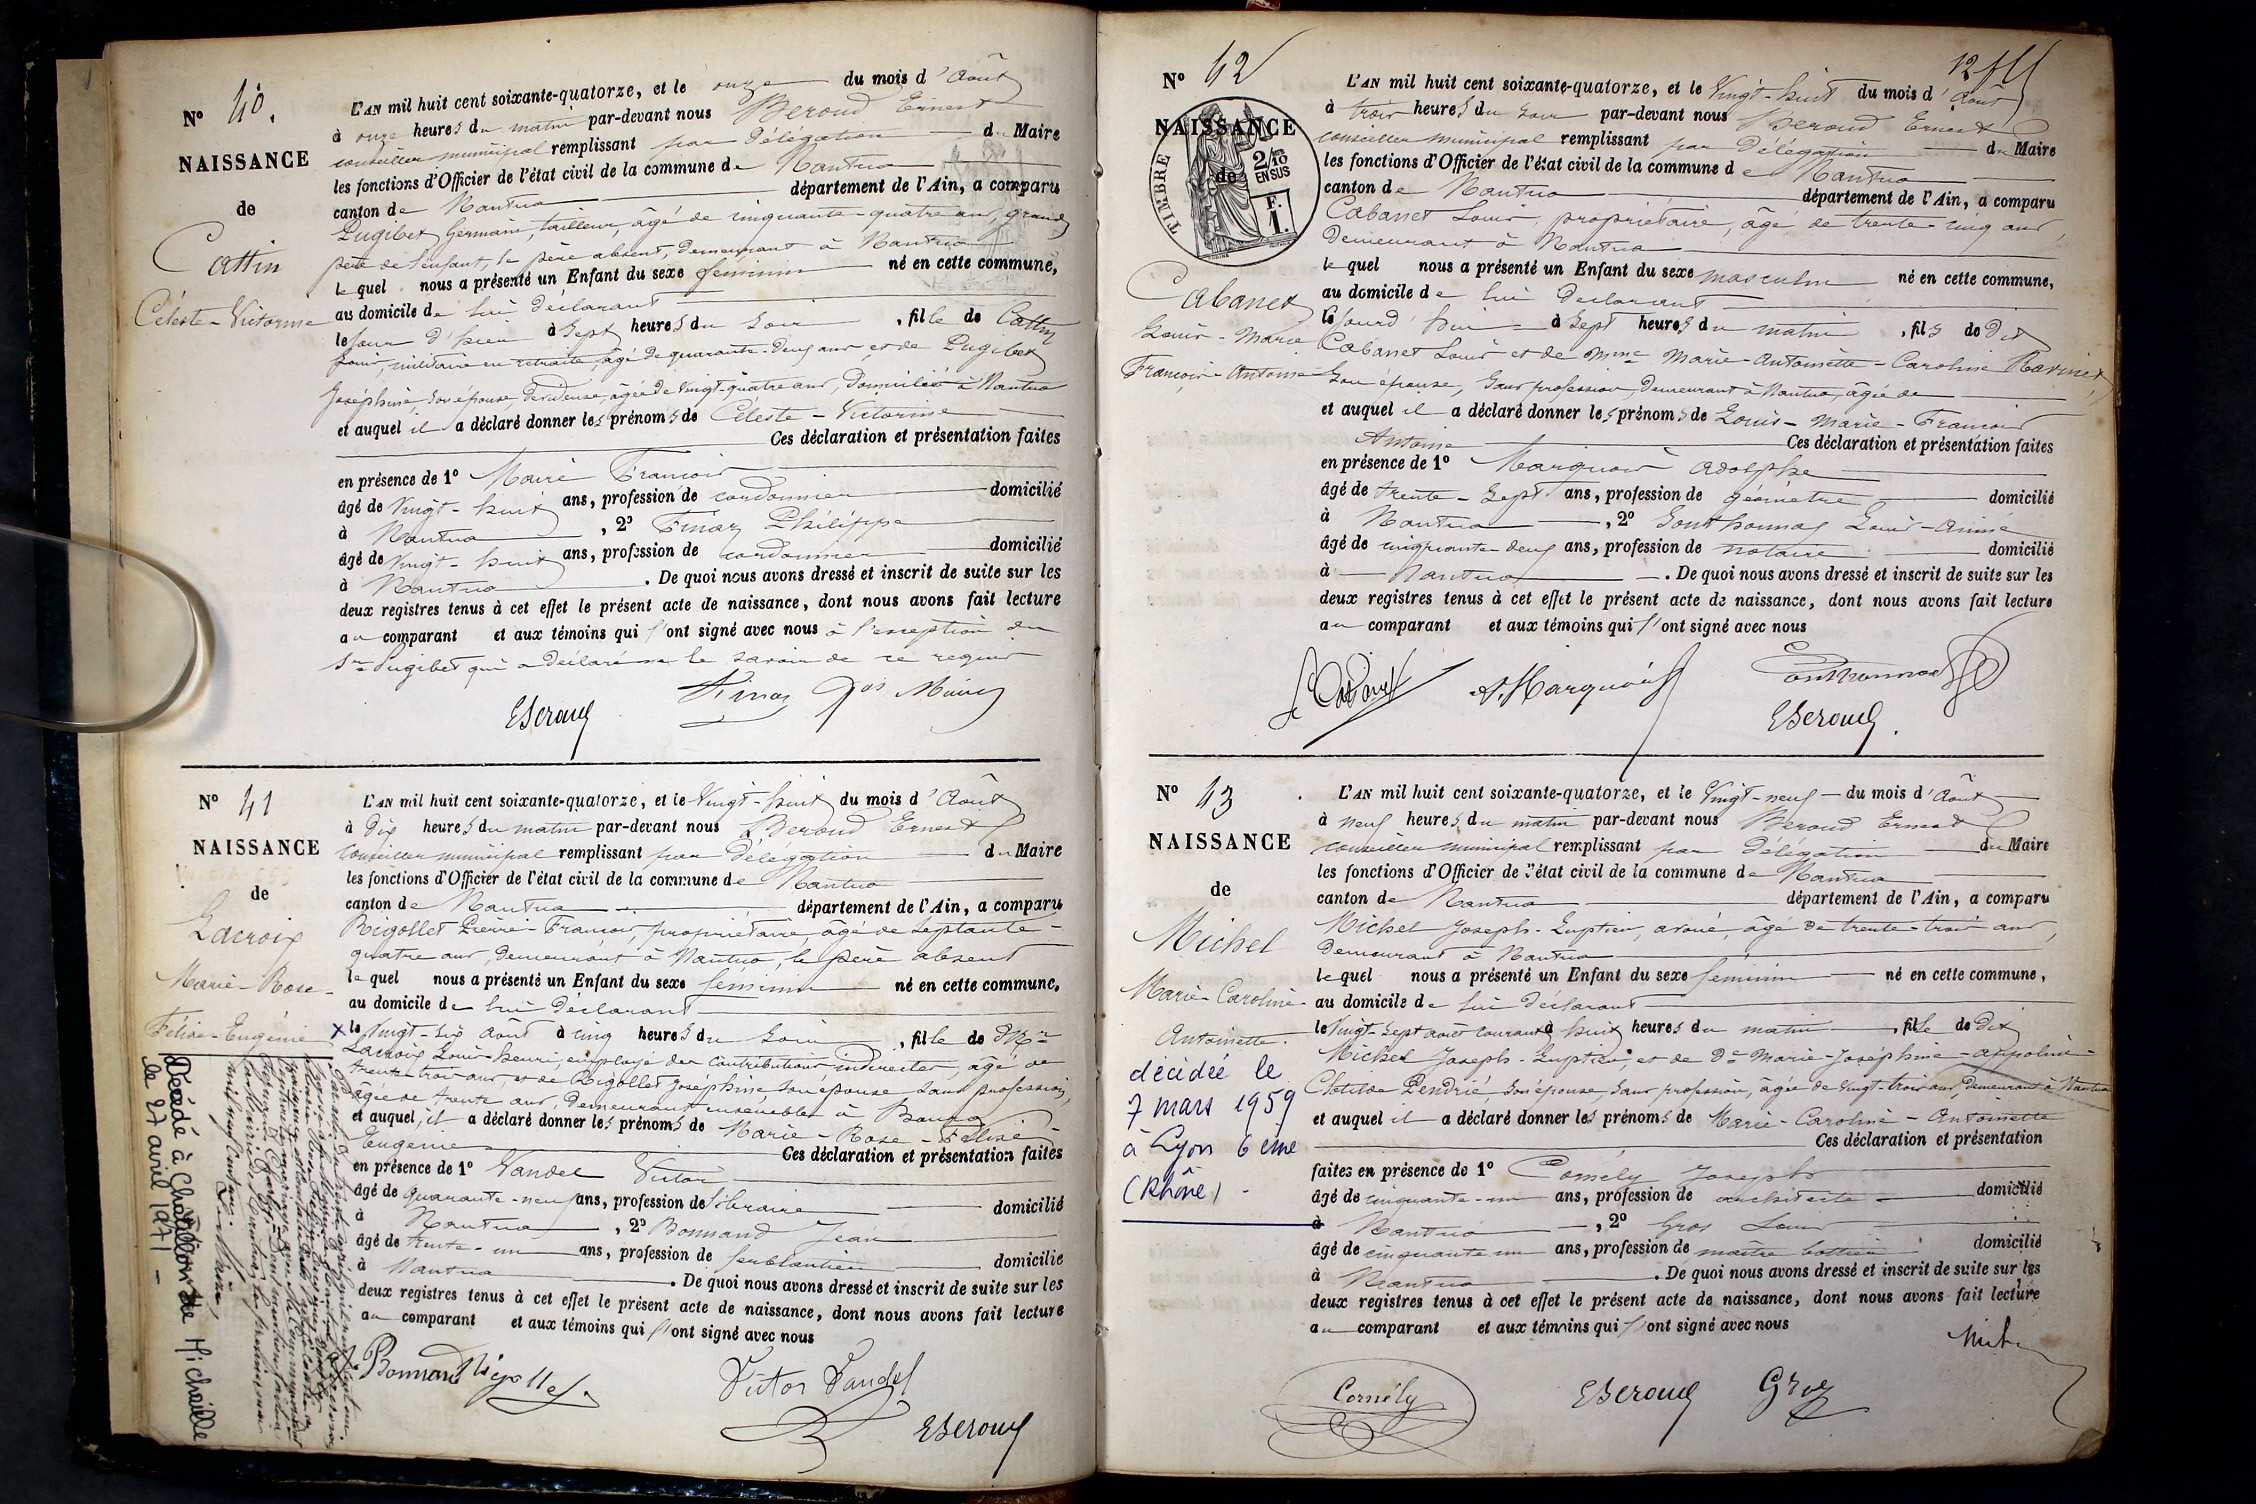 N° 40.
NAISSANCE
de
Cattin
Céleste-Victorine
L'AN mil huit cent soixante-quatorze, et le onze du mois d'Août
à onze heures du matin par-devant nous Beroud Ernest
conseiller municipal remplissant par Délégation du Maire
les fonctions d'Officier de l'état civil de la commune de Nantua
canton de Nantua département de l'Ain, a comparu
Pugibet Germain, tailleur, âgé de cinquante-quatre ans, grand
père de l'enfant, le père absent, demeurant à Nantua
lequel nous a présenté un Enfant du sexe féminin né en cette commune,
au domicile de lui déclarant
le jour d'hier à Sept heures du Soir, fille de Cattin
Louis, militaire en retraite, âgé de quarante-deux ans et de Pugibet
Joséphine Son épouse, Dévideuse, âgée de Vingt-quatre ans, Domiciliés à Nantua
et auquel il a déclaré donner les prénoms de Céleste-Victorine
Ces déclaration et présentation faites
en présence de 1° Maire François
âgé de Vingt-huit ans, profession de cordonnier domicilié
à Nantua, 2° Finaz Philippe
âgé de Vingt-huit ans, profession de cordonnier domicilié
à Nantua. De quoi nous avons dressé et inscrit de suite sur les
deux registres tenus à cet effet le présent acte de naissance, dont nous avons fait lecture
au comparant et aux témoins qui l'ont signé avec nous à l'exception du
Sr Pugibet qui a déclaré ne le savoir de ce requis
EBeroud Finaz
N° 41
NAISSANCE
de
Lacroix
Marie-Rose-
Félise-Eugénie
L'AN mil huit cent soixante-quatorze, et le Vingt-huit du mois d'Août
à Dix heures du matin par-devant nous Beroud Ernest
Conseiller municipal remplissant par Délégation du Maire
les fonctions d'Officier de l'état civil de la commune de Nantua
canton de Nantua département de l'Ain, a comparu
Rigollet Pierre-François, propriétaire âgé de Septante-
quatre ans, demeurant à Nantua, le père absent
lequel nous a présenté un Enfant du sexe féminin né en cette commune,
au domicile de lui déclarant
x le Vingt-Six août à cinq heures du Soir, fille de Mr
Lacroix Louis-henri, employé des Contributions indirectes, âgé de
trente-trois ans, et de Rigollet Joséphine, Son épouse Sans profession,
âgée de trente ans, Demeurant ensembles à
et auquel il a déclaré donner les prénoms de Marie-Rose-Félise-
Eugenie Ces déclaration et présentation faites
en présence de 1° Vandel Victor
âgé de quarante-neuf ans, profession de Libraire domicilié
à Nantua, 2° Bonnand Jean
âgé de trente-un ans, profession de ferblantier domicilié
à Nantua. De quoi nous avons dressé et inscrit de suite sur les
deux registres tenus à cet effet le présent acte de naissance, dont nous avons fait lecture
au comparant et aux témoins qui l'ont signé avec nous
Bonnand Rigollet Victor Vandel
EBeroud
Décédé à Chatillon de Michaille
le 27 avril 1971 -
12
N° 42
NAISSANCE
de
TIMBRE
2/10 EN SUS
F. 1.
Cabanet
Louis-Marie
François-Antoine
L'AN mil huit cent soixante-quatorze, et le Vingt-huit du mois d'Août
à trois heures du Soir par-devant nous Beroud Ernest
conseiller municipal remplissant par Délégation du Maire
les fonctions d'Officier de l'état civil de la commune de Nantua
canton de Nantua département de l'Ain, a comparu
Cabanet Louis, propriétaire, âgé de trente-cinq ans,
Demeurant à Nantua
lequel nous a présenté un Enfant du sexe masculin né en cette commune,
au domicile de lui déclarant
le jourd'hui à Sept heures du matin, fils de Dit
Cabanet Louis et de Mme Marie-Antoinette-Caroline Ravinet
Son épouse, Sans profession, Demeurant à Nantua, âgée de
et auquel il a déclaré donner les prénoms de Louis-Marie-François
Antoine Ces déclaration et présentation faites
en présence de 1° Marquois Adolphe
âgé de trente-Sept ans, profession de géomètre domicilié
à Nantua, 2° Gonthonnaz Louis-Aimé
âgé de cinquante-deux ans, profession de notaire domicilié
à Nantua. De quoi nous avons dressé et inscrit de suite sur les
deux registres tenus à cet effet le présent acte de naissance, dont nous avons fait lecture
au comparant et aux témoins qui l'ont signé avec nous
A. Marquois
EBeroud
N° 43
NAISSANCE
de
Michel
Marie-Caroline-
Antoinette.
décédée le
7 mars 1959
à Lyon 6ème
(Rhône) -
L'AN mil huit cent soixante-quatorze, et le Vingt-neuf du mois d'Août
à neuf heures du matin par-devant nous Beroud Ernest
conseiller municipal remplissant par Délégation du Maire
les fonctions d'Officier de l'état civil de la commune de Nantua
canton de Nantua département de l'Ain, a comparu
Michel Joseph-, avoué, âgé de trente-trois ans,
Demeurant à Nantua
lequel nous a présenté un Enfant du sexe féminin né en cette commune,
au domicile de lui déclarant
le Vingt-Sept août courant à huit heures du matin, fille de Dit
Michel Joseph-, et de De Marie-Joséphine-Appoline-
Clotilde Pendrié, Son épouse, Sans profession, âgée de Vingt-trois ans, Demeurant à Nantua
et auquel il a déclaré donner les prénoms de Marie-Caroline-Antoinette
Ces déclaration et présentation
faites en présence de 1° Cornély Joseph
âgé de cinquante-un ans, profession de architecte domicilié
à Nantua, 2° Gros Louis
âgé de cinquante un ans, profession de maître bottier domicilié
à Nantua. De quoi nous avons dressé et inscrit de suite sur les
deux registres tenus à cet effet le présent acte de naissance, dont nous avons fait lecture
au comparant et aux témoins qui l'ont signé avec nous
Cornély EBeroud Gros